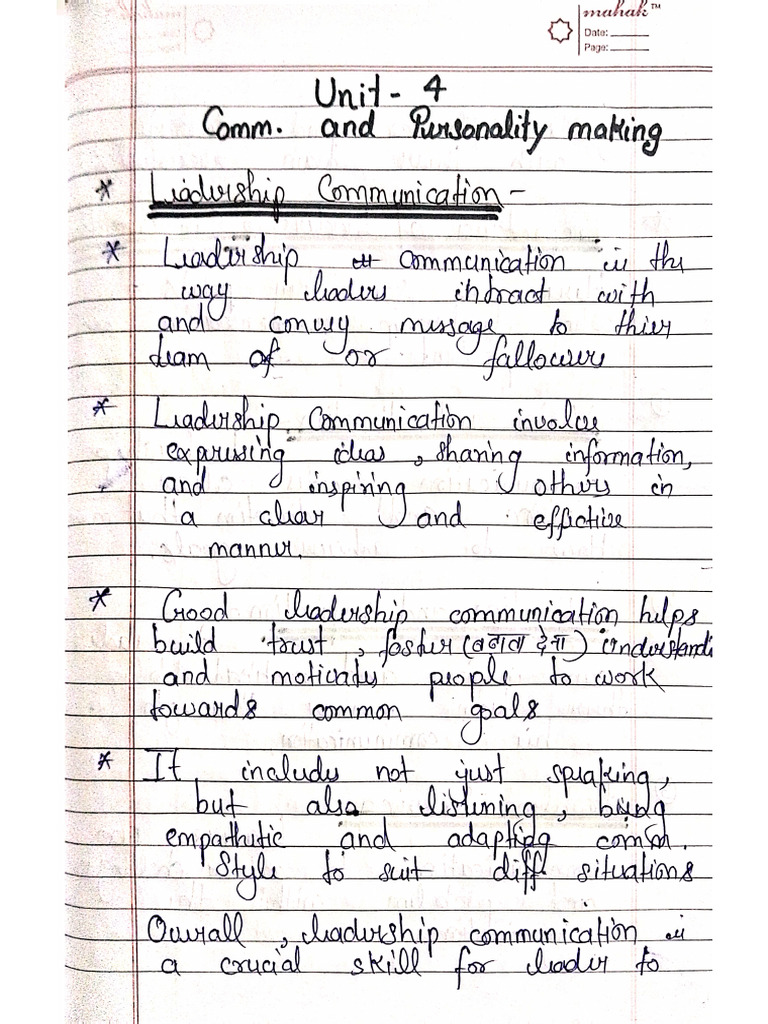 mahak™
Date:
Page:
Unit - 4
Comm. and Personality making
* Leadership Communication -
* Leadership communication is the
way leaders intract with
and convey message to thier
team of or fallowers
* Leadership Communication involves
expressing ideas, sharing information,
and inspiring others in
a clear and effective
manner.
* Good leadership communication helps
build trust, foster (बनावा देना) understandi
and motivates people to work
towards common goals
* It includes not just speaking,
but also listening, being
empathetic and adapting comm.
style to suit diff situations
Overall, leadership communication is
a crucial skill for leader to